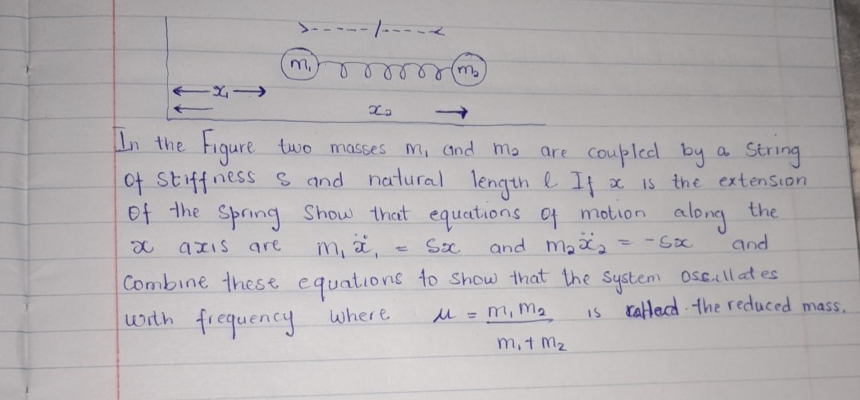 m₁ m₂
x₁
x₂
In the Figure two masses m₁ and m₂ are coupled by a String
Of stiffness s and natural length l If x is the extension
Of the spring Show that equations of motion along the
x axis are m₁ẍ₁ = sx and m₂ẍ₂ = -sx and
Combine these equations to show that the system oscillates
with frequency where μ = m₁m₂ / m₁+m₂ is called the reduced mass.